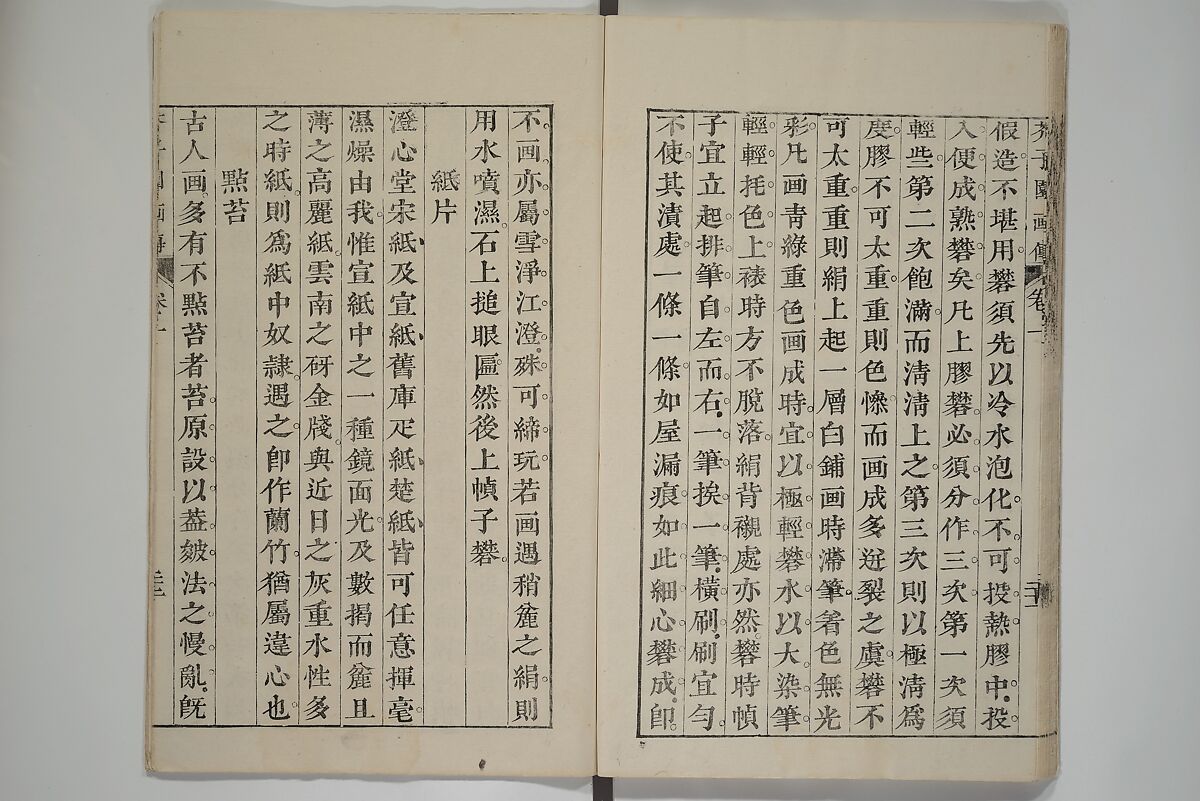 芥子園画傳 卷一 二十一
假造不堪用礬須先以冷水泡化不可投熱膠中投
入便成熟礬矣凡上膠礬必須分作三次第一次須
輕些第二次飽滿而淸淸上之第三次則以極淸爲
度膠不可太重重則色慘而画成多迸裂之虞礬不
可太重重則絹上起一層白鋪画時滯筆着色無光
彩凡画靑綠重色画成時宜以極輕礬水以大染筆
輕輕托色上裱時方不脫落絹背襯處亦然礬時幀
子宜立起排筆自左而右一筆挨一筆橫刷刷宜勻
不使其漬處一條一條如屋漏痕如此細心礬成卽
不画亦屬雪淨江澄殊可締玩若画遇稍麄之絹則
用水噴濕石上搥眼匾然後上幀子礬
紙片
澄心堂宋紙及宣紙舊庫疋紙楚紙皆可任意揮毫
濕燥由我惟宣紙中之一種鏡面光及數揭而麄且
薄之高麗紙雲南之砑金牋與近日之灰重水性多
之時紙則爲紙中奴隸遇之卽作蘭竹猶屬違心也
點苔
古人画多有不點苔者苔原設以葢皴法之慢亂旣